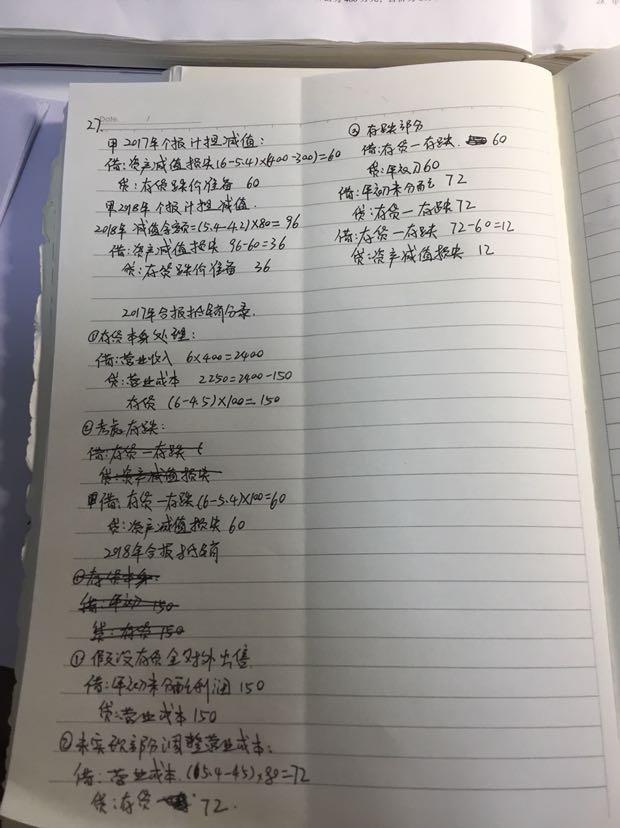 Date
27.
甲2017年个报计担减值:
借:资产减值损失(6-5.4)×(400-300)=60
贷:存货跌价准备 60
甲2018年个报计担减值.
2018年减值金额=(5.4-4.2)×80=96
借:资产减值损失 96-60=36
贷:存货跌价准备 36
2017年合报抵销分录.
①存货本身处理:
借:营业收入 6×400=2400
贷:营业成本 2250=2400-150
存货 (6-4.5)×100=150
②考虑存跌:
借:存货—存跌
贷:资产减值损失
甲借:存货—存跌(6-5.4)×100=60
贷:资产减值损失 60
2018年合报抵销
①存货本身:
借:年初 150
贷:存货 150
①假设存货全对外出售
借:年初未分配利润 150
贷:营业成本 150
②未实现部分调整营业成本:
借:营业成本 (5.4-4.5)×80=72
贷:存货 72.
②存跌部分
借:存货—存跌 60
贷:年初 60
借:年初未分配 72
贷:存货—存跌 72
借:存货—存跌 72-60=12
贷:资产减值损失 12